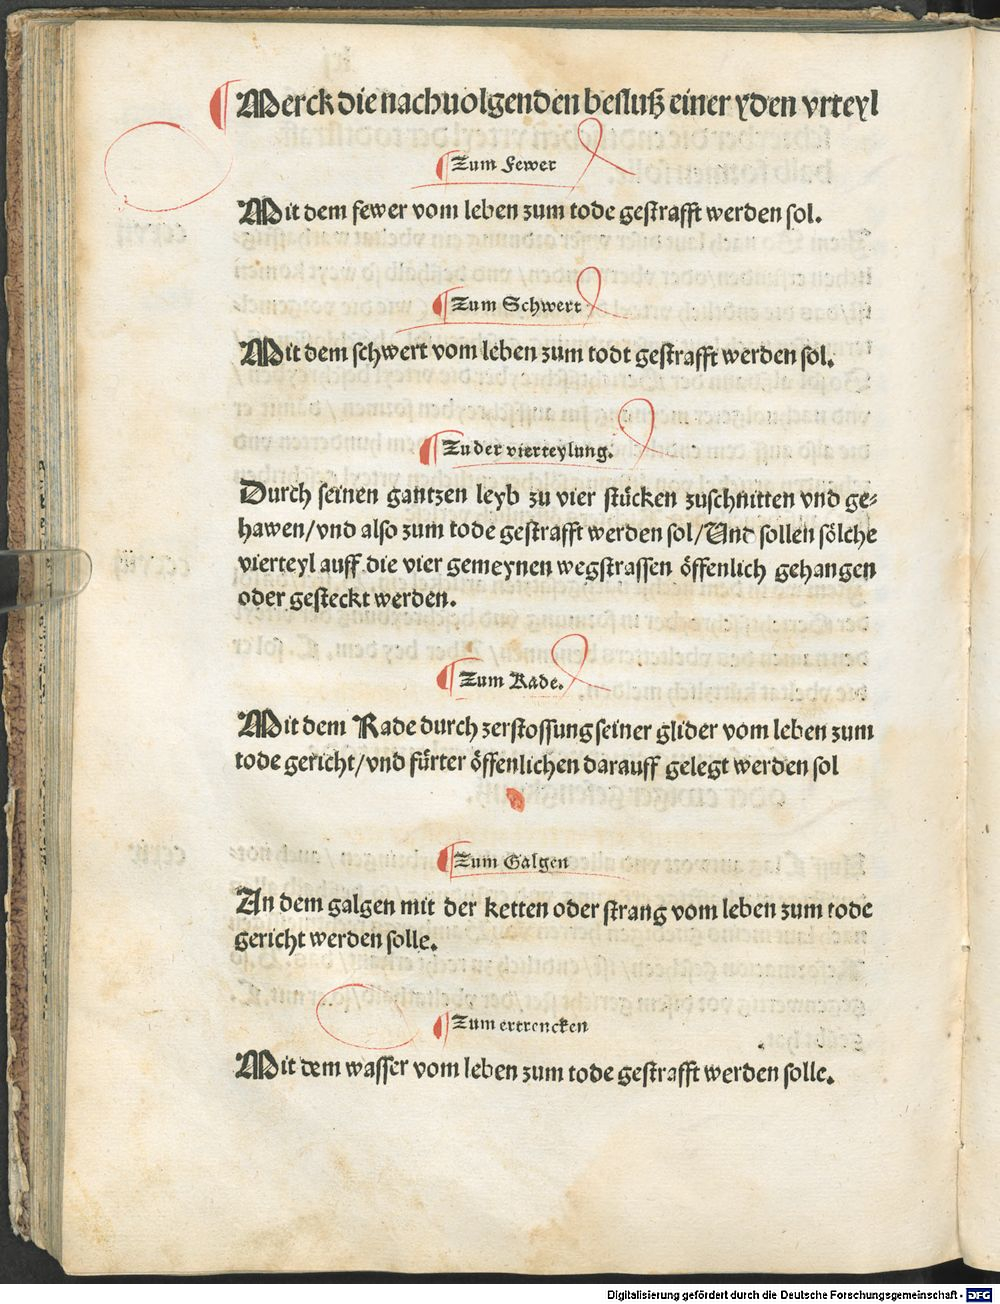 Merck die nachuolgenden besluß einer yden vrteyl
Zum Fewer
Mit dem fewer vom leben zum tode gestrafft werden sol.
Zum Schwert
Mit dem schwert vom leben zum todt gestrafft werden sol.
Zu der vierteylung.
Durch seinen gantzen leyb zu vier stücken zuschnitten vnd ge-
hawen/vnd also zum tode gestrafft werden sol/Und sollen sölche
vierteyl auff die vier gemeynen wegstrassen öffenlich gehangen
oder gesteckt werden.
Zum Rade.
Mit dem Rade durch zerstossung seiner glider vom leben zum
tode gericht/vnd fürter öffenlichen darauff gelegt werden sol
Zum Galgen
An dem galgen mit der ketten oder strang vom leben zum tode
gericht werden solle.
Zum ertrencken
Mit dem wasser vom leben zum tode gestrafft werden solle.
Digitalisierung gefördert durch die Deutsche Forschungsgemeinschaft - DFG